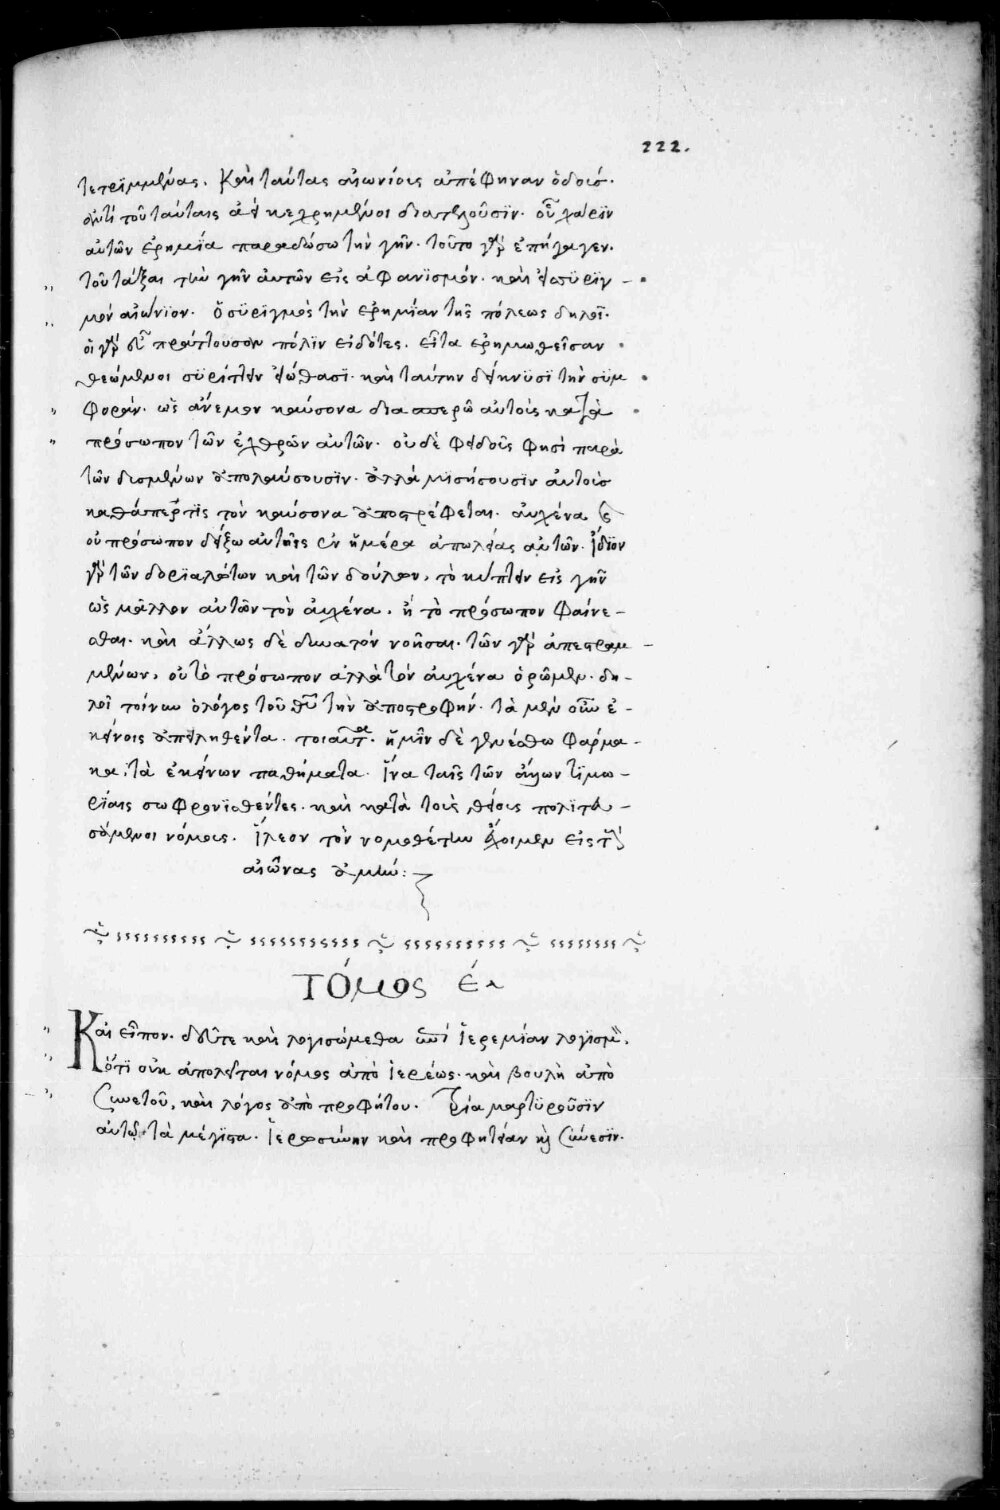 222.
τετριμμένας. Καὶ ταύτας αἰωνίους ἀπέφηναν ὁδούς.
ἀντὶ τοῦ ταύταις ἀεὶ κεχρημένοι διατελοῦσϊν. οὗ χάρϊν
αὐτῶν ἐρημία παραδώσω τὴν γῆν. τοῦτο γὰρ ἐπήγαγεν.
τοῦ τάξαι τὴν γῆν αὐτῶν εἰς ἀφανϊσμόν. καὶ σϋριγ–
μὸν αἰώνϊον. Ὁ σϋριγμὸς τὴν ἐρημίαν τῆς πόλεως δηλοῖ.
οἱ γὰρ εὖ πράττουσαν πόλϊν εἰδότες. εἶτα ἐρημωθεῖσαν
θεώμενοι σϋρίττειν εἰώθασϊ. καὶ ταύτην δείκνϋσϊ τὴν σϋμ
φοράν. ὡς ἄνεμον καύσονα διασπερῶ αὐτοὺς κατὰ
πρόσωπον τῶν ἐχθρῶν αὐτῶν. οὐδὲ φειδοῦς φησὶ παρὰ
τῶν δυσμενῶν ἀπολαύσουσϊν. ἀλλὰ μϊσήσουσϊν αὐτοὺς
καθάπερ τϊς τὸν καύσονα ἀποστρέφεται. αὐχένα καὶ
οὐ πρόσωπον δείξω αὐτοῖς ἐν ἡμέρα ἀπωλείας αὐτῶν. Ἴδϊον
γὰρ τῶν δορϊαλώτων καὶ τῶν δούλων, τὸ κύπτειν εἰς γῆν
ὡς μᾶλλον αὐτῶν τὸν αὐχένα, ἢ τὸ πρόσωπον φαίνε–
σθαι. καὶ ἄλλως δὲ δυνατὸν νοῆσαι. τῶν γὰρ ἀπεστραμ–
μένων, οὐ τὸ πρόσωπον ἀλλὰ τὸν αὐχένα ὁρῶμεν. δη–
λοῖ τοίνυν ὁ λόγος τοῦ θυ τὴν ἀποστροφήν. τὰ μὲν οὖν ἐ–
κείνοις ἀπειληθέντα. τοιαῦτα. ἡμῖν δὲ γενέσθω φάρμα–
κα, τὰ ἐκείνων παθήματα. Ἵνα ταῖς τῶν ἄλλων τϊμω–
ρίαις σωφρονϊσθέντες. καὶ κατὰ τοὺς θείους πολϊτευ–
σόμενοι νόμους. Ἵλεων τὸν νομοθέτην ἔχοιμεν εἰς τοὺς
αἰῶνας ἀμήν:
ΤΌμος έ
Καὶ εἶπον. δεῦτε καὶ λογισώμεθα ἐπὶ Ἱερεμίαν λογϊσμὸν.
Ὅτϊ οὐκ ἀπολεῖται νόμος ἀπὸ ἱερέως. καὶ βουλὴ ἀπὸ
συνετοῦ, καὶ λόγος ἀπὸ προφήτου. Τρία μαρτϋροῦσϊν
αὐτῷ τὰ μέγϊστα. Ἱερωσύνην καὶ προφητείαν κὶ σύνεσϊν.